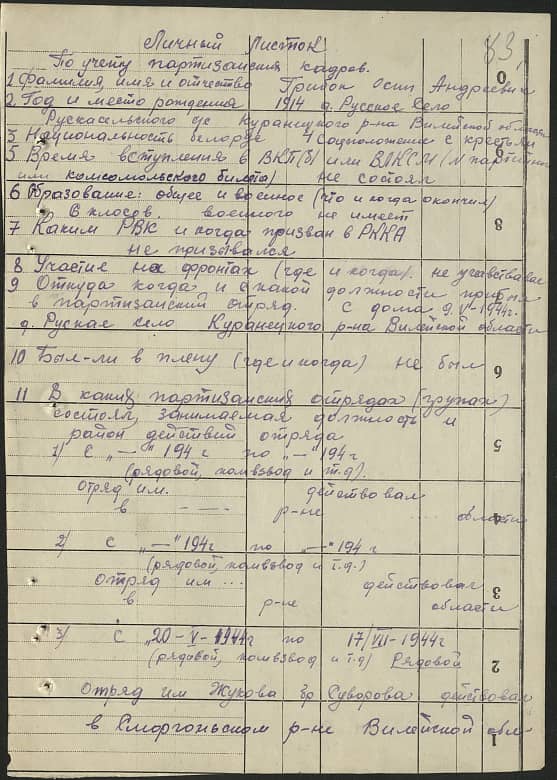 83.
Личный листок
По учету партизанских кадров.
1 Фамилия, имя и отчество Грибок Осип Андреевич
2. Год и место рождения 1914 д. Русское Село
Рускасельского с/с Куранецкого р-на Вилейской области
3 Национальность белорус 4 Соцположение с крестьян
5 Время вступления в ВКП(б) или ВЛКСМ (N партийного
или комсомольского билета) не состоял
6 Образование: общее и военное (что и когда окончил)
6 классов. военного не имеет
7 Каким РВК и когда призван в РККА
не призывался
8 Участие на фронтах (где и когда). не участвовал
9 Откуда когда и с какой должности прибыл
в партизанский отряд. с дома 9.V-1944г.
д. Руское село Куранецкого р-на Вилейской области
10 Был-ли в плену (где и когда) не был
11 В каких партизанских отрядах (группах)
состоял, занимаемая должность и
район действий отряда
1) с „—" 194 г по „—" 194г
(рядовой, комвзвод и т.д).
Отряд им. действовал
в р-не области
2) с „—" 194г по „—" 194 г
(рядовой, комвзвод и т.д.)
Отряд им ... действовал
в р-не области
3) с „20-V-1944г по 17/VII-1944г
(рядовой, комвзвод и т.д) Рядовой
Отряд им Жукова бр Суворова действовал
в Сморгоньском р-не Вилейской обл-
0
8
8
6
5
4
3
2
1